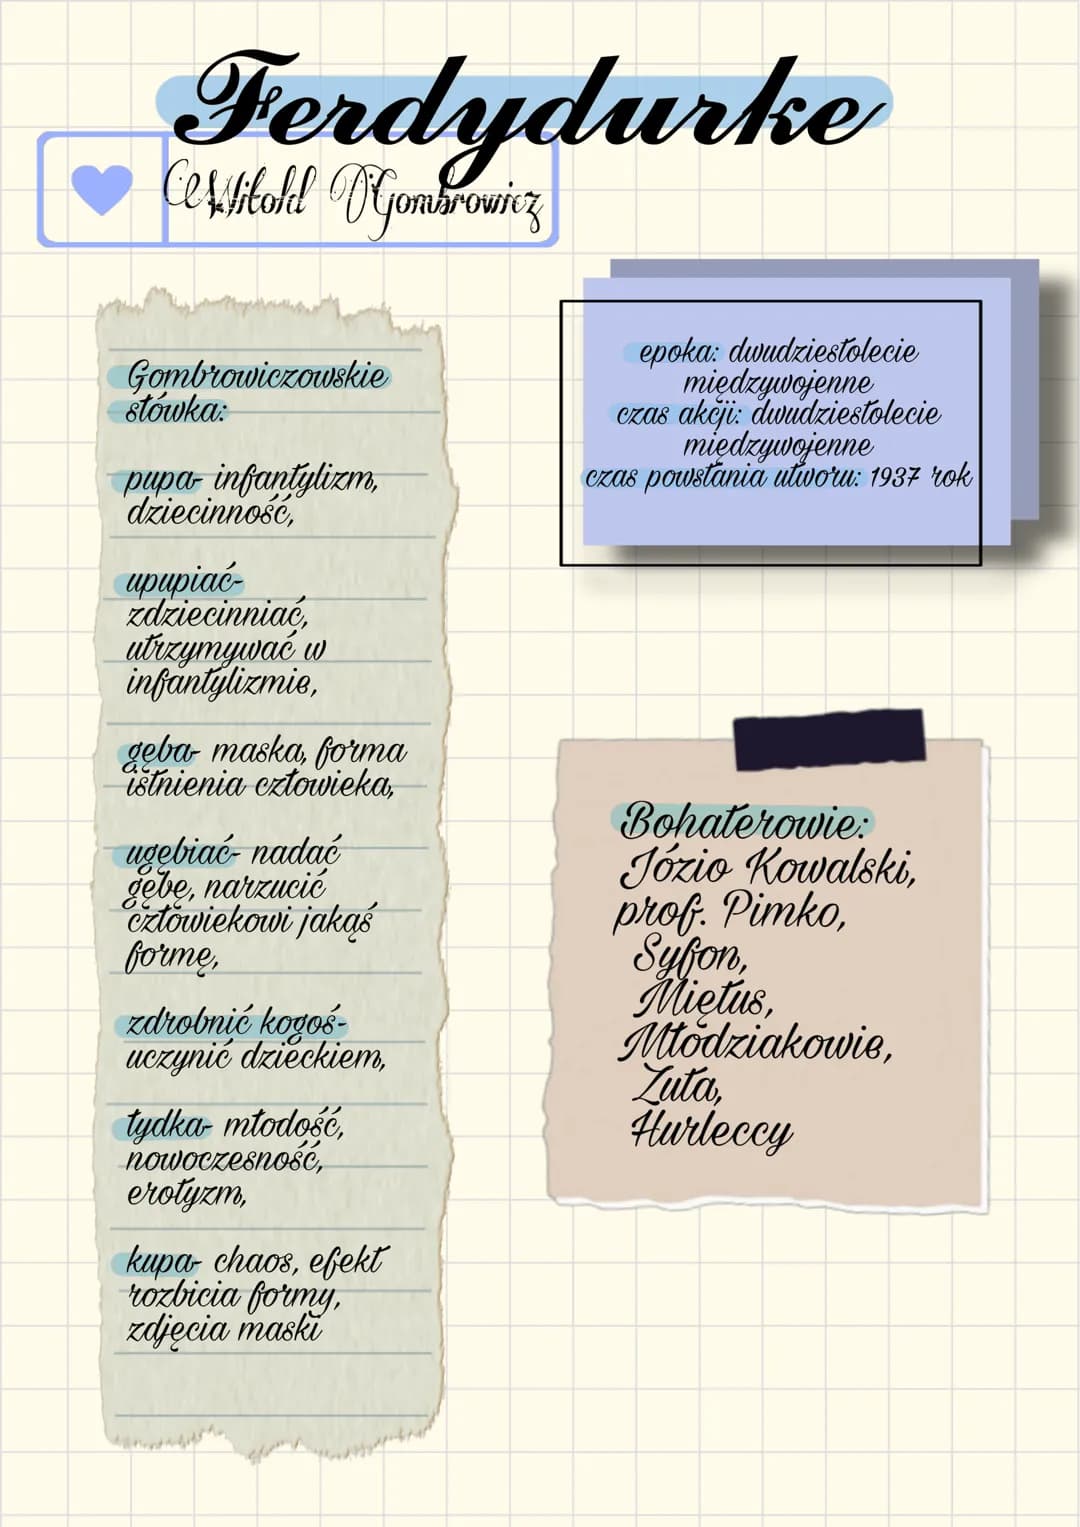 Ferdydurke
Witold Gombrowicz
Gombrowiczowskie
słówka:
pupa- infantylizm,
dziecinność,
upupiać-
zdziecinniać,
utrzymywać w
infantylizmie,
gęba- maska, forma
istnienia człowieka,
ugębiać- nadać
gębę, narzucić
człowiekowi jakąś
formę,
zdrobnić kogoś-
uczynić dzieckiem,
łydka- młodość,
nowoczesność,
erotyzm,
kupa- chaos, efekt
rozbicia formy,
zdjęcia maski
epoka: dwudziestolecie
międzywojenne
czas akcji: dwudziestolecie
międzywojenne
czas powstania utworu: 1937 rok
Bohaterowie:
Józio Kowalski,
prof. Pimko,
Syfon,
Miętus,
Młodziakowie,
Zuta,
Hurleccy